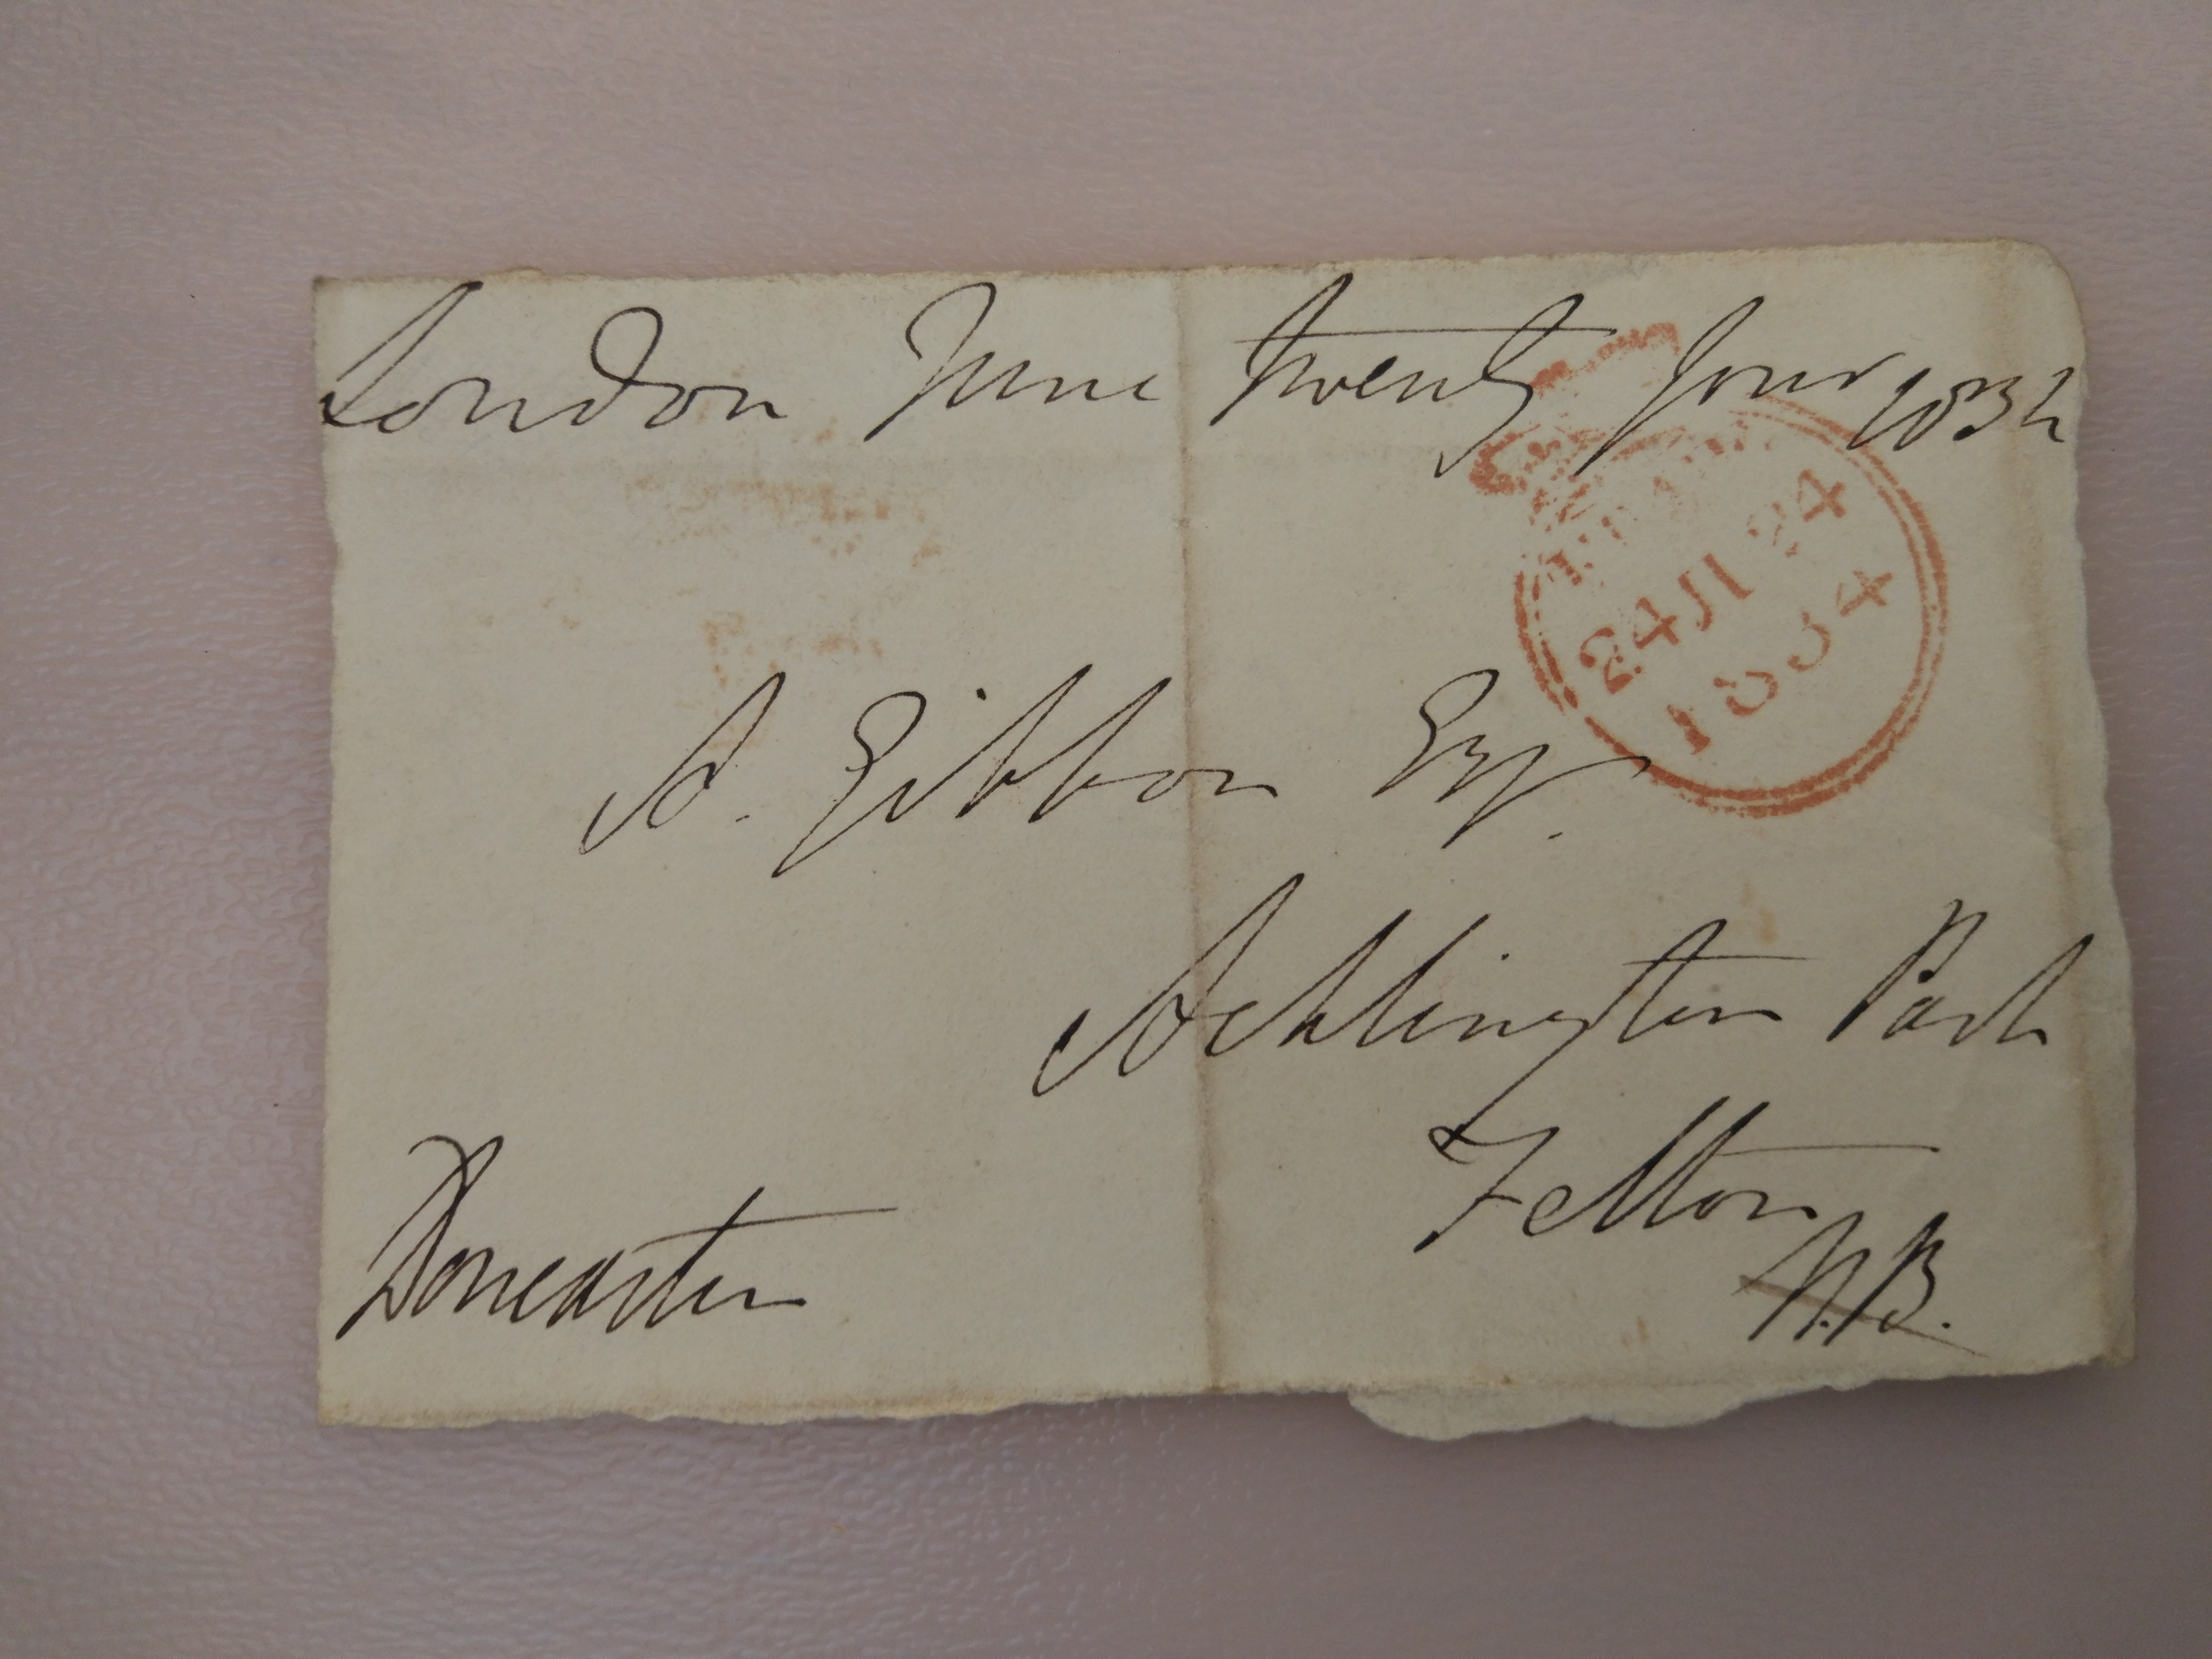 London June twenty four 1834
24 JU 24
1834
A. Gibbon Esqr.
Acklington Park
Felton
N.B.
Doncaster